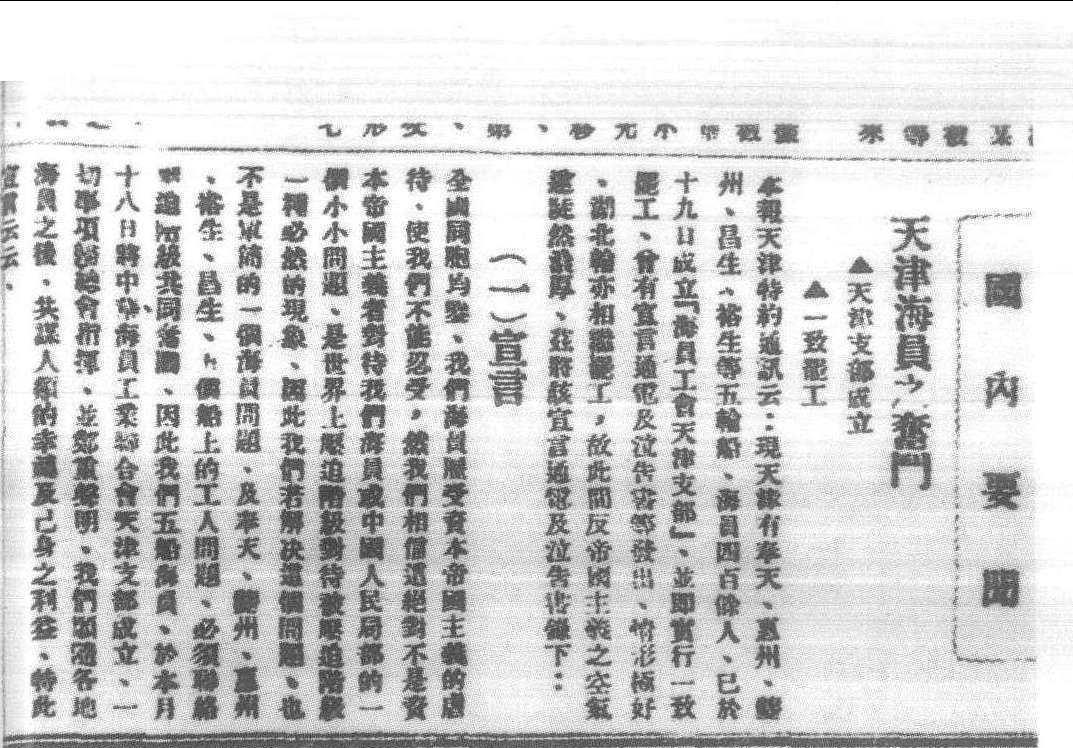 國內要聞
天津海員之奮鬥
▲天津支部成立
▲一致罷工
本報天津特約通訊云：現天津有奉天、惠州、
州、昌生、裕生等五輪船、海員四百餘人、已於
十九日成立「海員工會天津支部」、並即實行一致
罷工、曾有宣言通電及泣告書等發出、情形極好
、湖北輪亦相繼罷工，故此間反帝國主義之空氣
遂陡然濃厚、茲將該宣言通電及泣告書錄下：
（一）宣言
全國同胞均鑒、我們海員歷受資本帝國主義的虐
待、使我們不能忍受，然我們相信這絕對不是資
本帝國主義者對待我們海員或中國人民局部的一
個小小問題、是世界上壓迫階級對待被壓迫階級
一種必然的現象、因此我們若解決這個問題、也
不是單簡的一個海員問題、及奉天、州、惠州
、裕生、昌生、個船上的工人問題、必須聯絡
壓迫階級共同奮鬭、因此我們五船海員、於本月
十八日將中華海員工業聯合會天津支部成立、一
切事項聽總會指揮、並鄭重聲明、我們願隨各地
海員之後、共謀人類的幸福及己身之利益、特此
宣言云云、